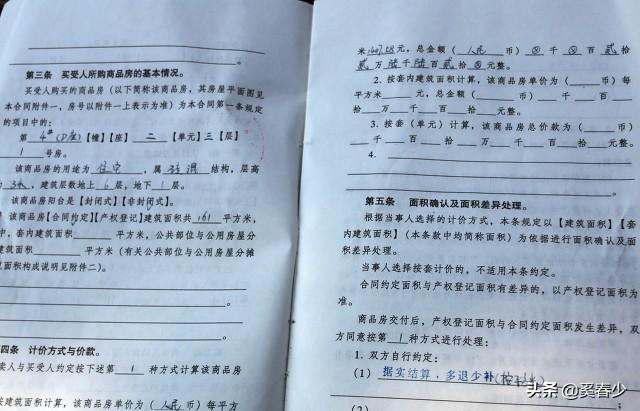 第三条 买受人所购商品房的基本情况。
买受人购买的商品房（以下简称该商品房，其房屋平面图见
本合同附件一，房号以附件一上表示为准）为本合同第一条规定
的项目中的：
第 4# (D座) 【幢】【座】 二 【单元】 三 【层】
1 号房。
该商品房的用途为 住宅 ，属 结构，层高
建筑层数地上 6 层，地下 1 层。
该商品房阳台是【封闭式】【非封闭式】。
该商品房【合同约定】【产权登记】建筑面积共 161 平方米，
中，套内建筑面积 平方米，公共部位与公用房屋分
建筑面积 平方米（有关公共部位与公用房屋分摊
面积构成说明见附件二）。
四条 计价方式与价款。
卖人与买受人约定按下述第 1 种方式计算该商品房
按建筑面积计算，该商品房单价为（ 人民 币）每平方
米 元，总金额（ 人民 币） 千 百 贰 拾
万 陆 千 陆 百 贰 拾 元整。
2. 按套内建筑面积计算，该商品房单价为（ 币）每
平方米 元，总金额（ 币） 千 百
拾 万 千 百 拾 元整。
3. 按套（单元）计算，该商品房总价款为（ 币）
千 百 拾 万 千 百 拾 元整。
4.
第五条 面积确认及面积差异处理。
根据当事人选择的计价方式，本条规定以【建筑面积】【套
内建筑面积】（本条款中均简称面积）为依据进行面积确认及面
积差异处理。
当事人选择按套计价的，不适用本条约定。
合同约定面积与产权登记面积有差异的，以产权登记面积为
准。
商品房交付后，产权登记面积与合同约定面积发生差异，双
方同意按第 1 种方式进行处理：
1. 双方自行约定：
（1） 据实结算，多退少补
（2）
头条 @奚春少